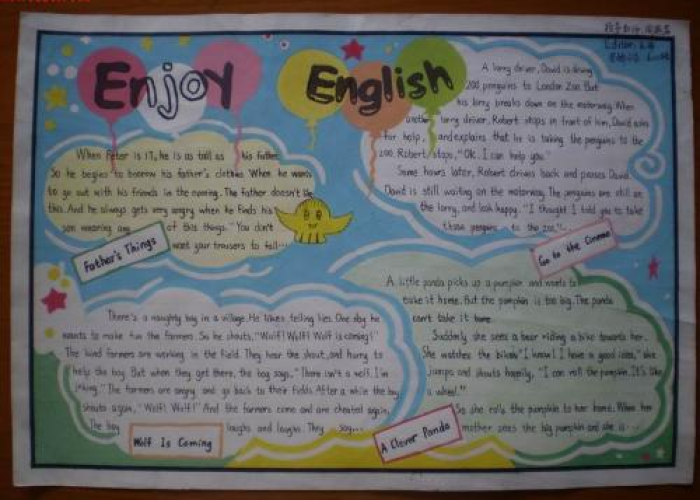 Enjoy English
Edition
When Peter is 17, he is as tall as his father.
So he begins to borrow his father's clothes When he wants
to go out with his friends in the evening. The father doesn't like
this. And he always gets very angry when he finds his
son wearing any of this things. "You don't
want your trousers to fall...
Father's Things
A lorry driver, David is driving
200 penguins to London Zoo But
his lorry breaks down on the motorway. When
another lorry driver, Robert stops in front of him, David asks
for help, and explains that he is taking the penguins to the
zoo. Robert stops, "Ok. I can help you."
Some hours later, Robert drives back and passes David.
David is still waiting on the motorway. The penguins are still on
the lorry, and look happy. "I thought I told you to take
those penguins to the zoo."
Go to the
There's a naughty boy in a village. He likes telling lies. One day he
wants to make fun the farmers. So he shouts, "Wolf! Wolf! Wolf is coming!"
The kind farmers are working in the field. They hear the shout, and hurry to
help the boy. But when they get there, the boy says, "There isn't a wolf. I'm
joking." The farmers are angry and go back to their fields. After a while the boy
shouts again, "Wolf! Wolf!" And the farmers come and are cheated again.
The boy laughs and laughs. They say...
Wolf Is Coming
A little panda picks up a pumpkin and wants to
take it home. But the pumpkin is too big. The panda
can't take it home.
Suddenly she sees a bear riding a bike towards her.
She watches the bike. "I know! I have a good idea," she
jumps and shouts happily, "I can roll the pumpkin. It's like
a wheel."
So she rolls the pumpkin to her home. When her
mother sees the big pumpkin and she is...
A Clever Panda